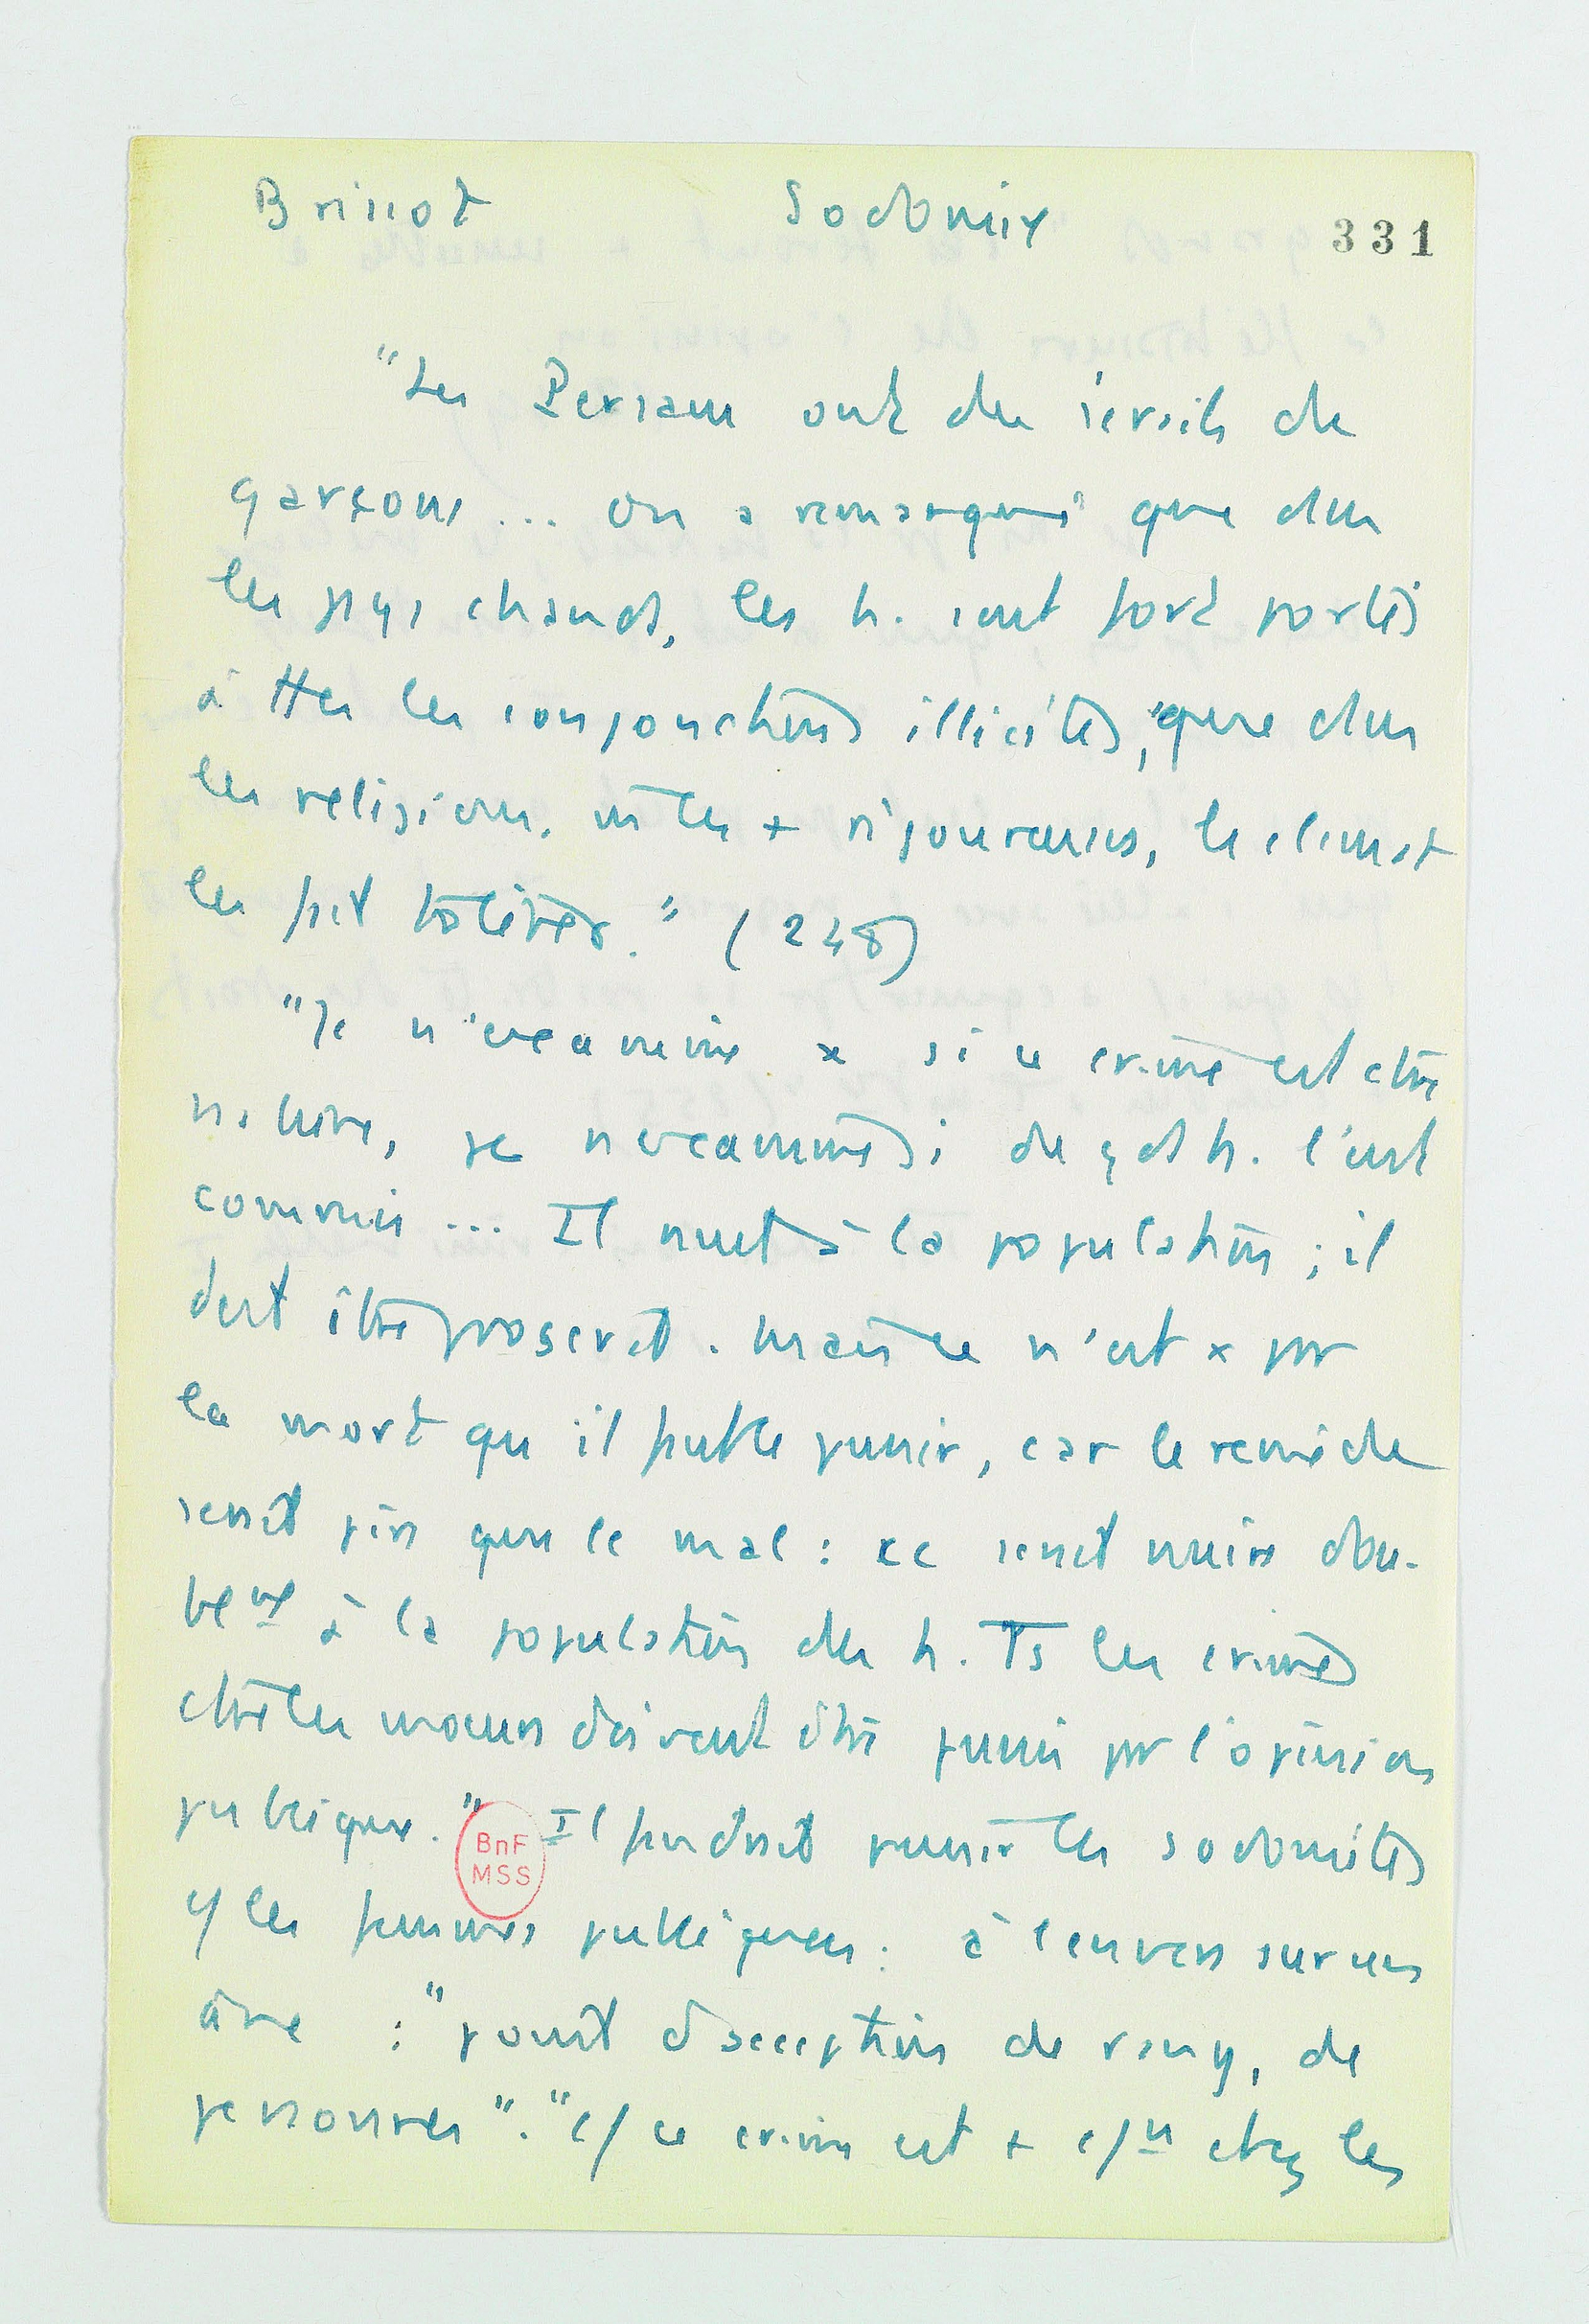 Brissot Sodomie
331
"Les Persans ont des sérails de
garçons ... On a remarqué que dns
les pays chauds, les h. sont fort portés
à ttes les conjonctions illicites, que dns
les religions. mêmes les + rigoureuses, le climat
les fait tolérer." (248)
"Je n'examine x si ce crime est ctre
nature, je n'examine si de gds h. l'ont
commis ... Il nuit à la population ; il
doit être proscrit. Mais ce n'est x pr
la mort qu'il faut le punir, car le remède
serait pire que le mal : ce serait nuire dou-
blemt à la population des h. Ts les crimes
ctre les mœurs doivent être punis pr l'opinion
publique." Il faudrait punir les sodomites
c/ les femmes publiques : à l'envers sur un
âne : "point d'acception de rang, de
personnes". "c/ ce crime est + c/n chez les
BnF
MSS